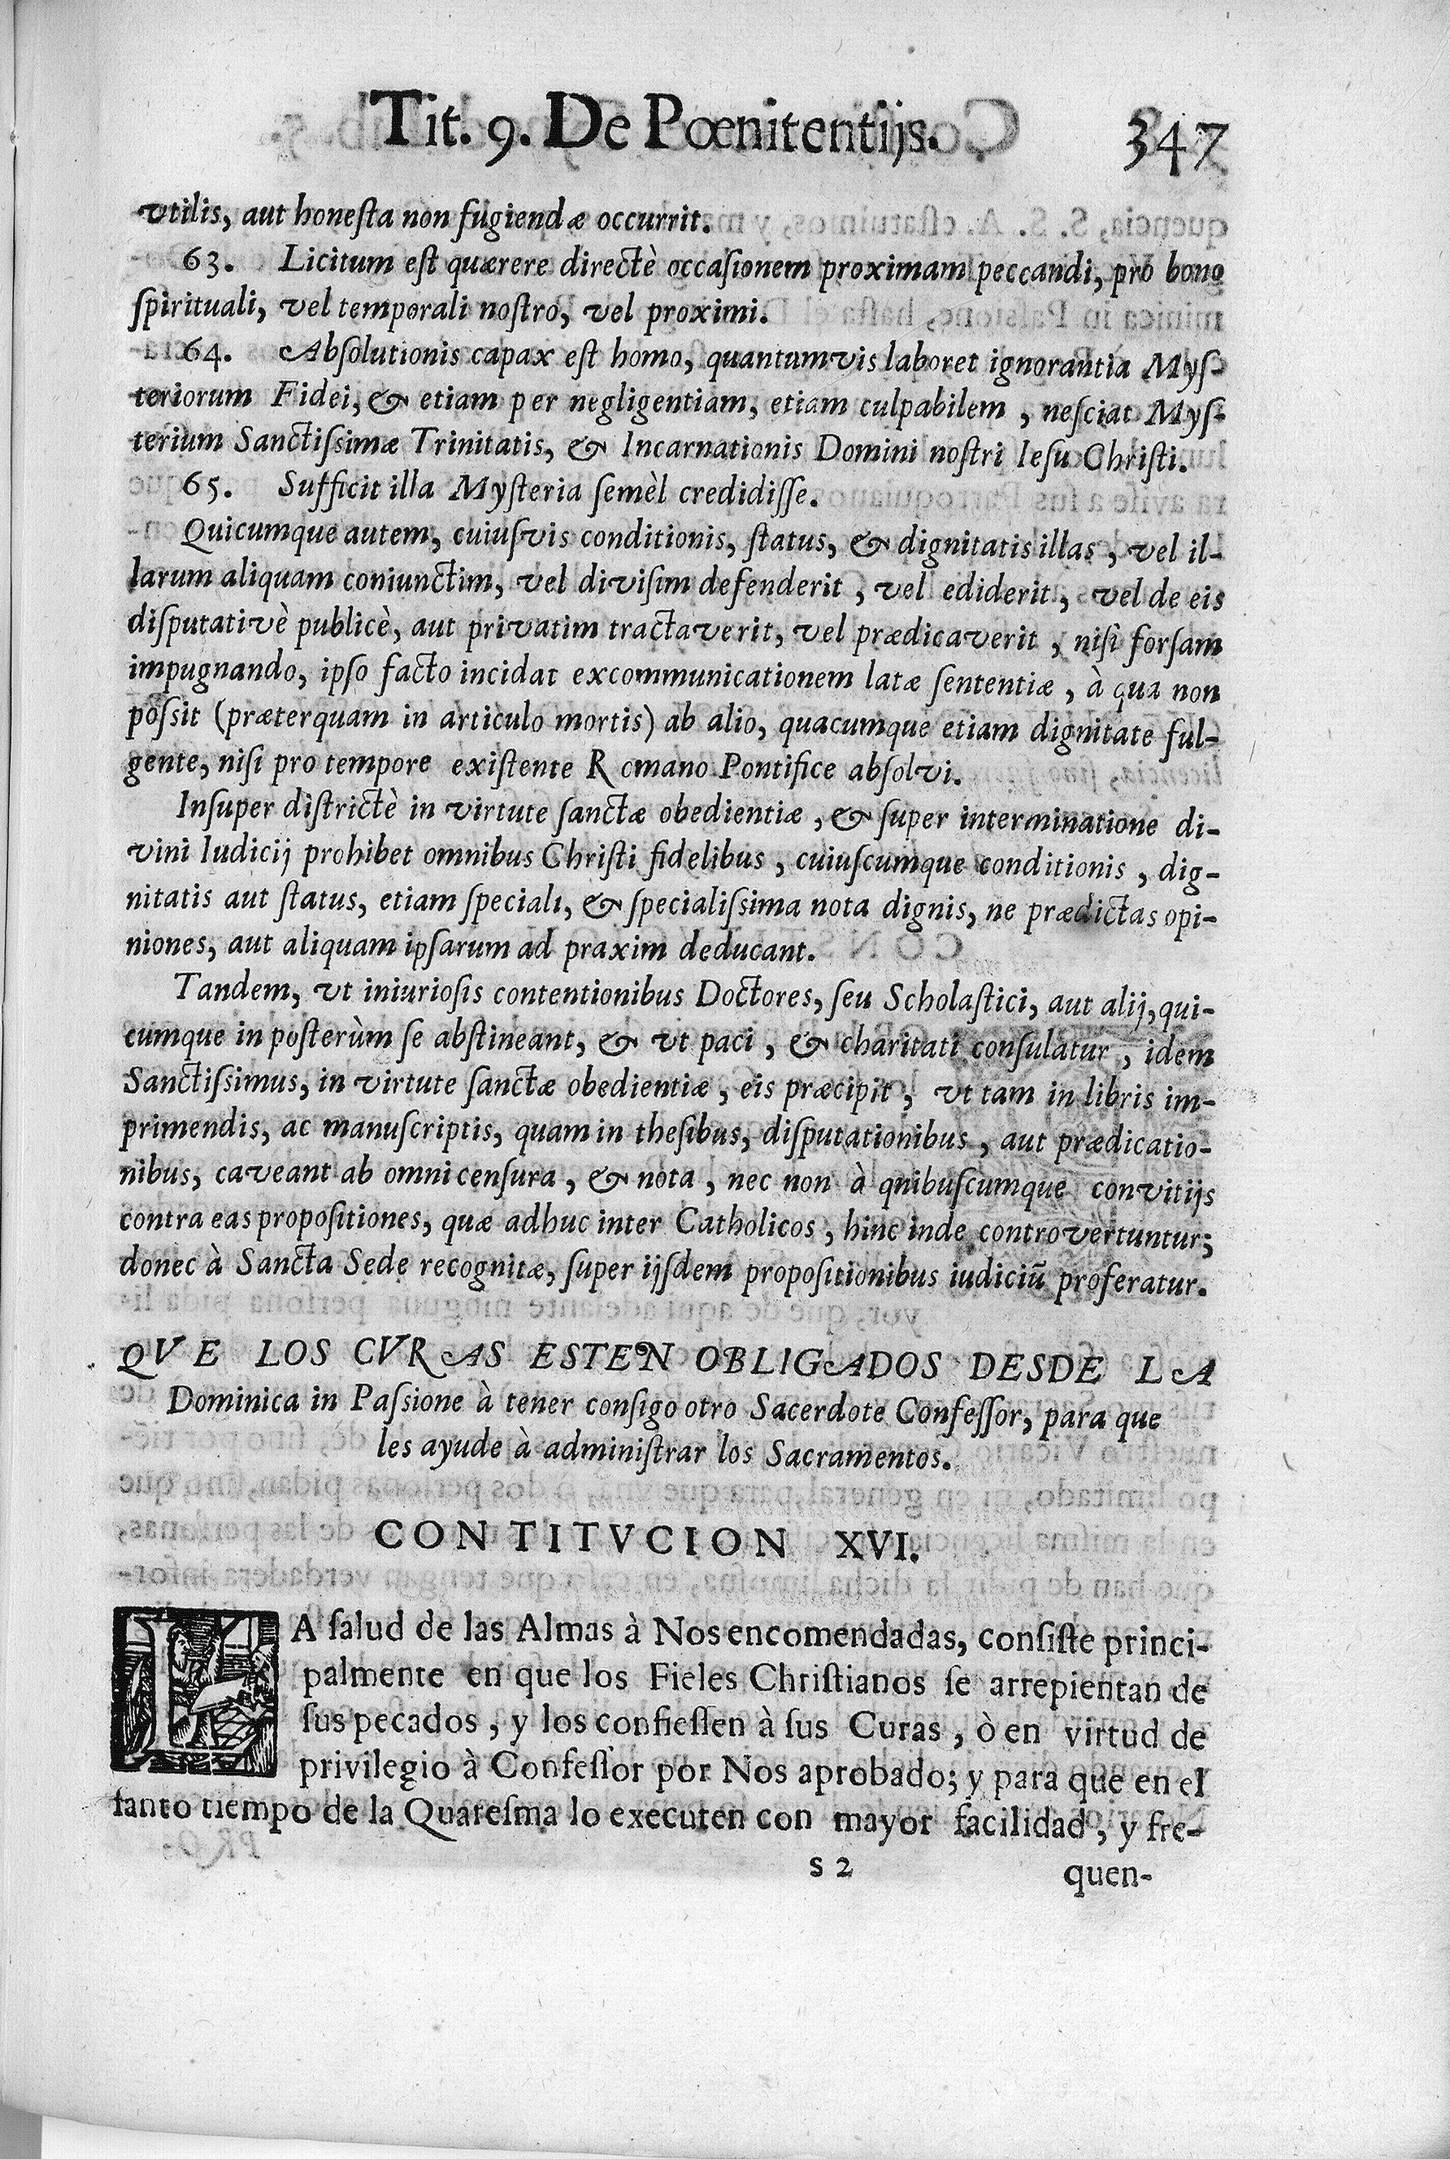 Tit. 9. De Pœnitentijs. 347
vtilis, aut honeſta non fugiendæ occurrit.
63. Licitum eſt quærere directè occaſionem proximam peccandi, pro bono
ſpirituali, vel temporali noſtro, vel proximi.
64. Abſolutionis capax eſt homo, quantumvis laboret ignorantia Myſ-
teriorum Fidei, & etiam per negligentiam, etiam culpabilem, neſciat Myſ-
terium Sanctiſsimæ Trinitatis, & Incarnationis Domini noſtri Ieſu Chriſti.
65. Sufficit illa Myſteria ſemèl credidiſſe.
Quicumque autem, cuiuſvis conditionis, ſtatus, & dignitatis illas, vel il-
larum aliquam coniunctim, vel diviſim defenderit, vel ediderit, vel de eis
diſputativè publicè, aut privatim tractaverit, vel prædicaverit, niſi forſam
impugnando, ipſo facto incidat excommunicationem latæ ſententiæ, à qua non
poſsit (præterquam in articulo mortis) ab alio, quacumque etiam dignitate ful-
gente, niſi pro tempore exiſtente Romano Pontifice abſolvi.
Inſuper diſtrictè in virtute ſanctæ obedientiæ, & ſuper interminatione di-
vini Iudicij prohibet omnibus Chriſti fidelibus, cuiuſcumque conditionis, dig-
nitatis aut ſtatus, etiam ſpeciali, & ſpecialiſsima nota dignis, ne prædictas opi-
niones, aut aliquam ipſarum ad praxim deducant.
Tandem, vt iniurioſis contentionibus Doctores, ſeu Scholaſtici, aut alij, qui-
cumque in poſterùm ſe abſtineant, & vt paci, & charitati conſulatur, idem
Sanctiſsimus, in virtute ſanctæ obedientiæ, eis præcipit, vt tam in libris im-
primendis, ac manuſcriptis, quam in theſibus, diſputationibus, aut prædicatio-
nibus, caveant ab omni cenſura, & nota, nec non à qnibuſcumque convitijs
contra eas propoſitiones, quæ adhuc inter Catholicos, hinc inde controvertuntur;
donec à Sancta Sede recognitæ, ſuper ijſdem propoſitionibus iudiciũ proferatur.
QVE LOS CVRAS ESTEN OBLIGADOS DESDE LA
Dominica in Paſsione à tener conſigo otro Sacerdote Confeſſor, para que
les ayude à adminiſtrar los Sacramentos.
CONTITVCION XVI.
LA ſalud de las Almas à Nos encomendadas, conſiſte princi-
palmente en que los Fieles Chriſtianos ſe arrepientan de
ſus pecados, y los confieſſen à ſus Curas, ò en virtud de
privilegio à Confeſſor por Nos aprobado; y para que en el
ſanto tiempo de la Quareſma lo executen con mayor facilidad, y fre-
S 2 quen-